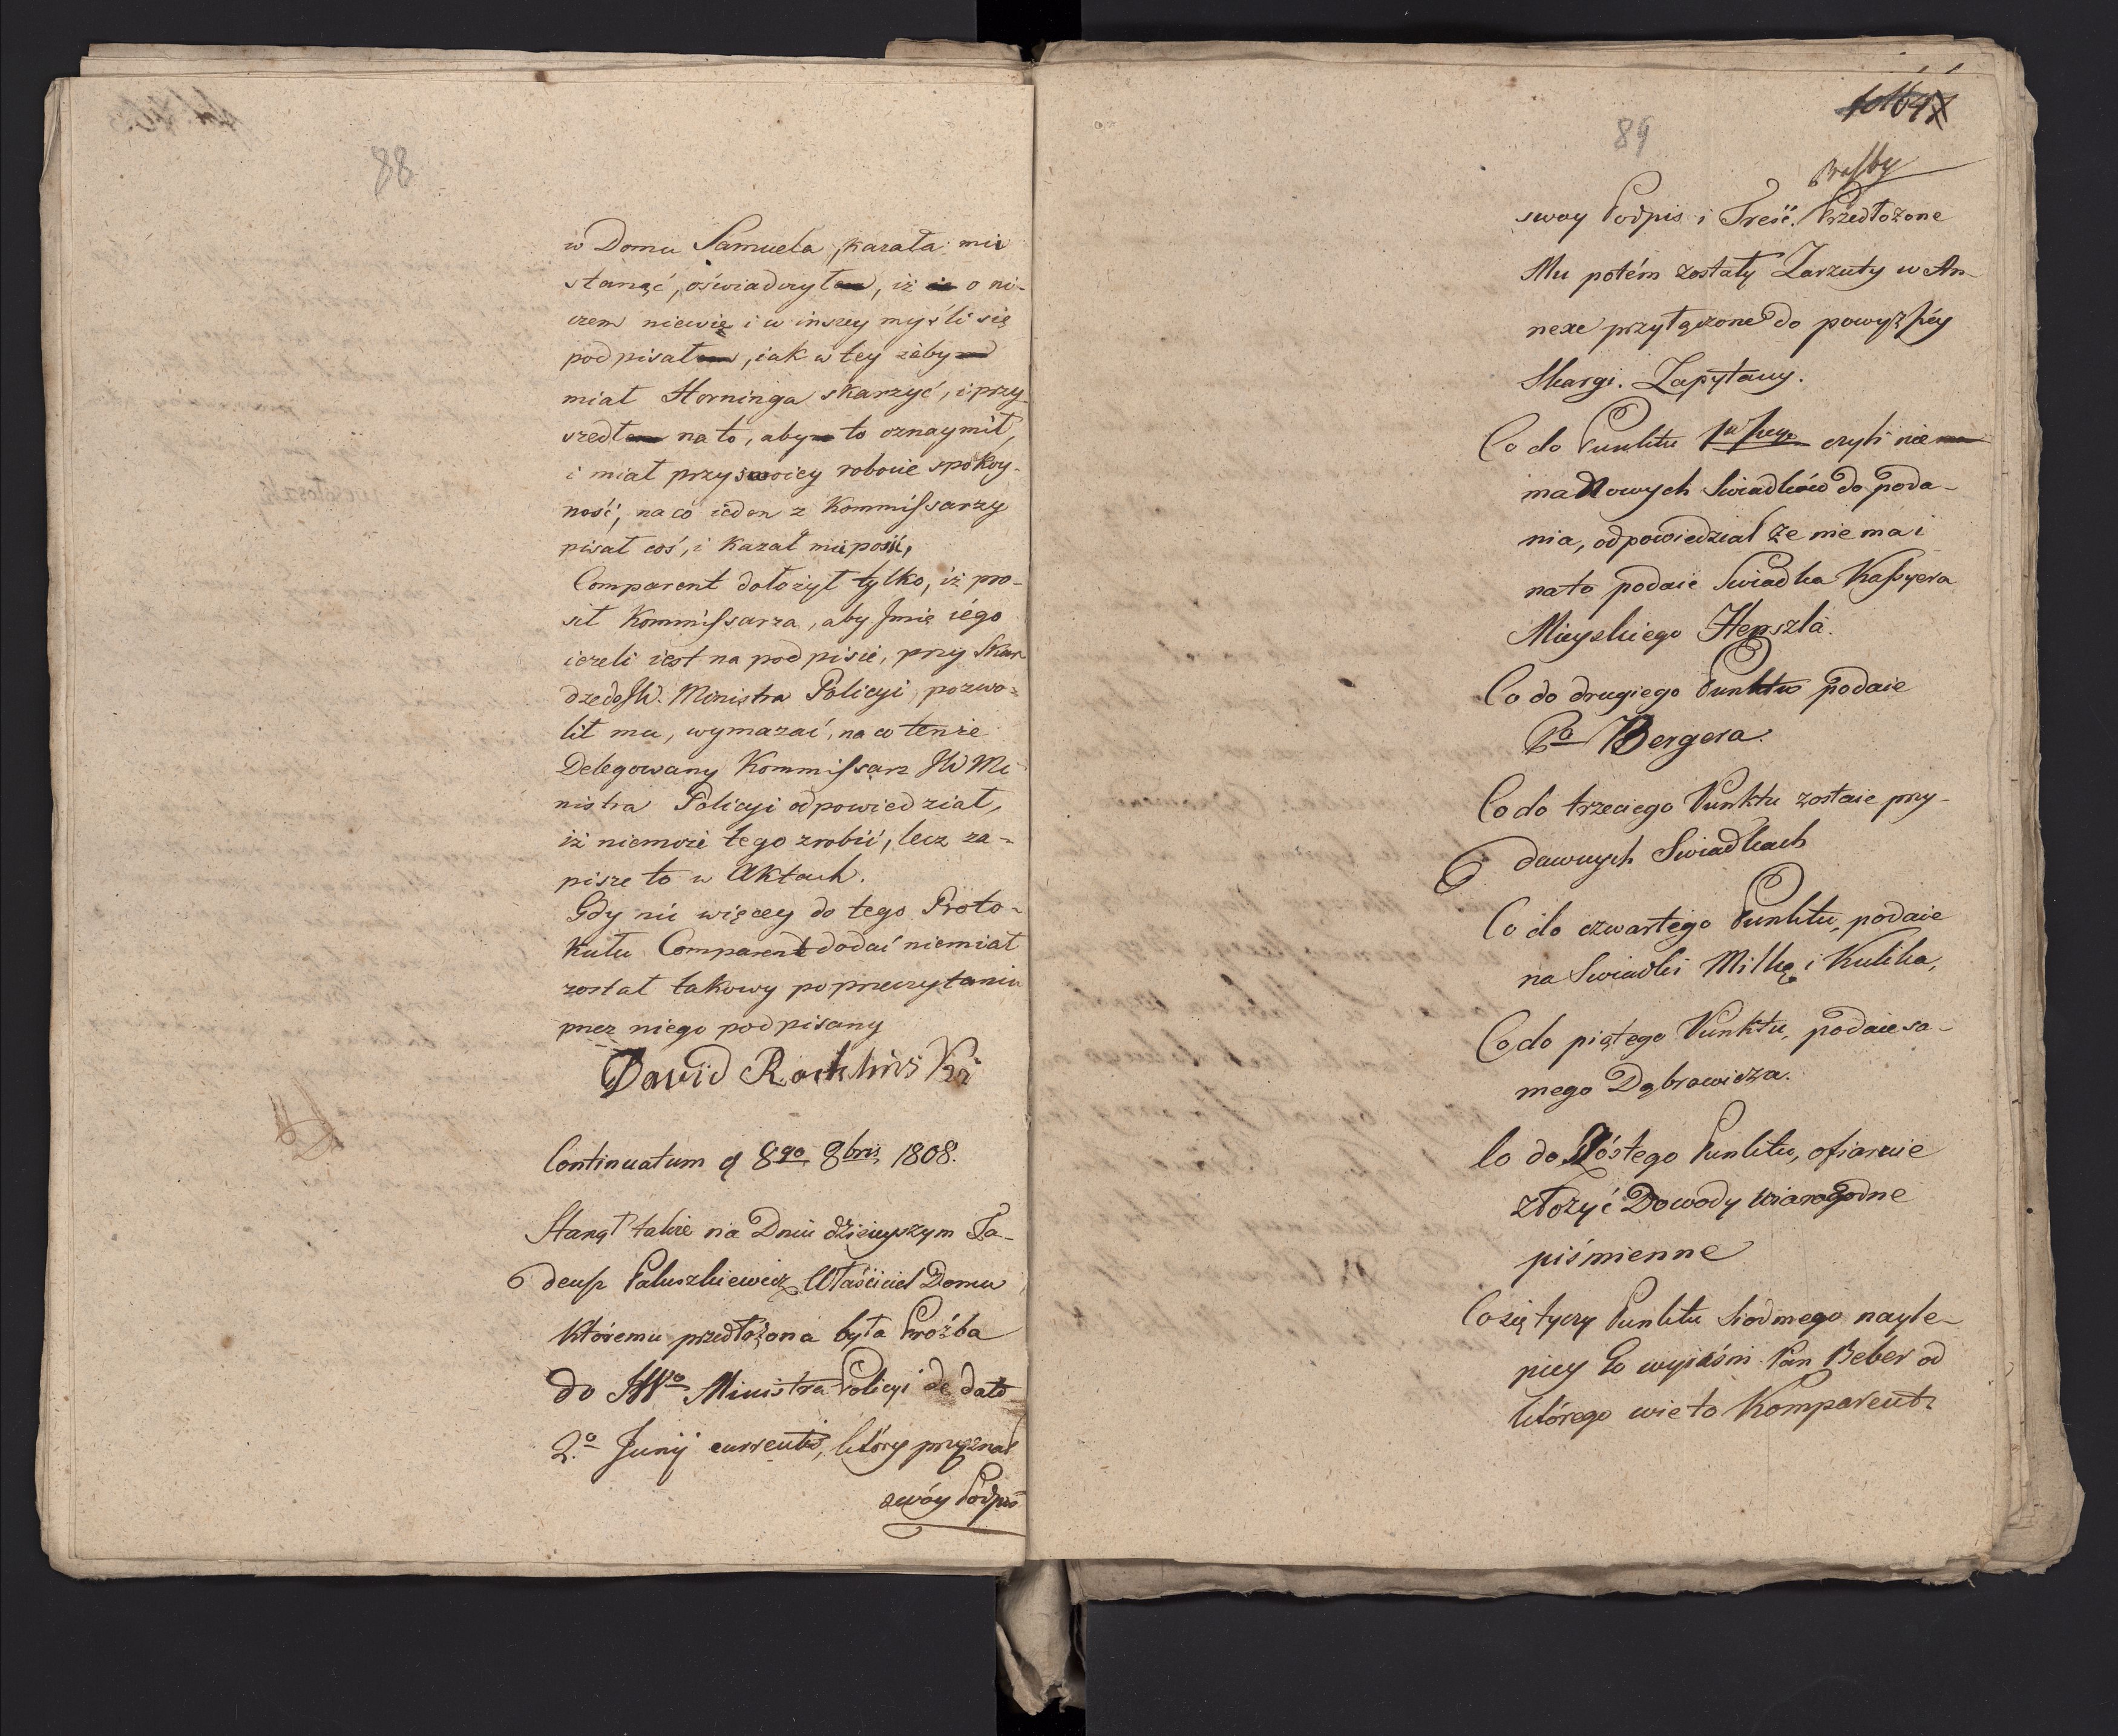 88
w Domu Samuela, kazała mu
stanąć, oświadczył, iż o ni-
czem niewie i w inszey myśli się
podpisał, iak w tey żeby
miał Horninga skarzyć, i przy-
szedł na to, aby to oznaymił,
i miał przy swoiey robocie spokoy-
ność, na co ieden z Kommissarzy
pisał coś, i kazał mu pość,
Comparent dołożył tylko, iż pro-
sił Kommissarza, aby Imię iego
ieżeli iest na podpisie, przy Skar
dze do JW. Ministra Policyi, pozwo-
lił mu, wymazać, na co tenże
Delegowany Kommissarz JW Mi
nistra Policyi odpowiedział,
iż niemoże tego zrobić, lecz za-
pisze to w Aktach.
Gdy nic więcey do tego Proto-
kułu Comparent dodać niemiał
został takowy po przeczytaniu
przez niego podpisany
David
Continuatum d 8go 8bris 1808.
Stanął także na Dniu dzisieyszym Ta-
deusz Paluszkiewicz Właściciel Domu
któremu przedłożona była Proźba
do JWo Ministra Policyi de dato
2o Junij currentis, który przyznał
swóy Podpis
89
Proźby
swoy Podpis i Treść. Przedłożone
Mu potém zostały Zarzuty w An-
nexe przyłączone do powyższéy
Skargi. Zapytany.
Co do Punktu czyli nie
ma Nowych Swiadków do poda-
nia, odpowiedział że nie ma i
na to podaie Swiadka Kassyera
Mieyskiego Henszla.
Co do drugiego Punktu podaie
Po Bergera.
Co do trzeciego Punktu zostaie przy-
dawnych Swiadkach
Co do czwartego Punktu, podaie
na Swiadki Milkę i Kulika,
Co do piątego Punktu, podaie sa-
mego Dąbrowicza.
Co do Szóstego Punktu, ofiaruie
złożyć Dowody wiarogodne
piśmienne
Co się tyczy Punktu Siodmego nayle-
piey to wyiaśni Pan Beber od
którego wie to Komparent